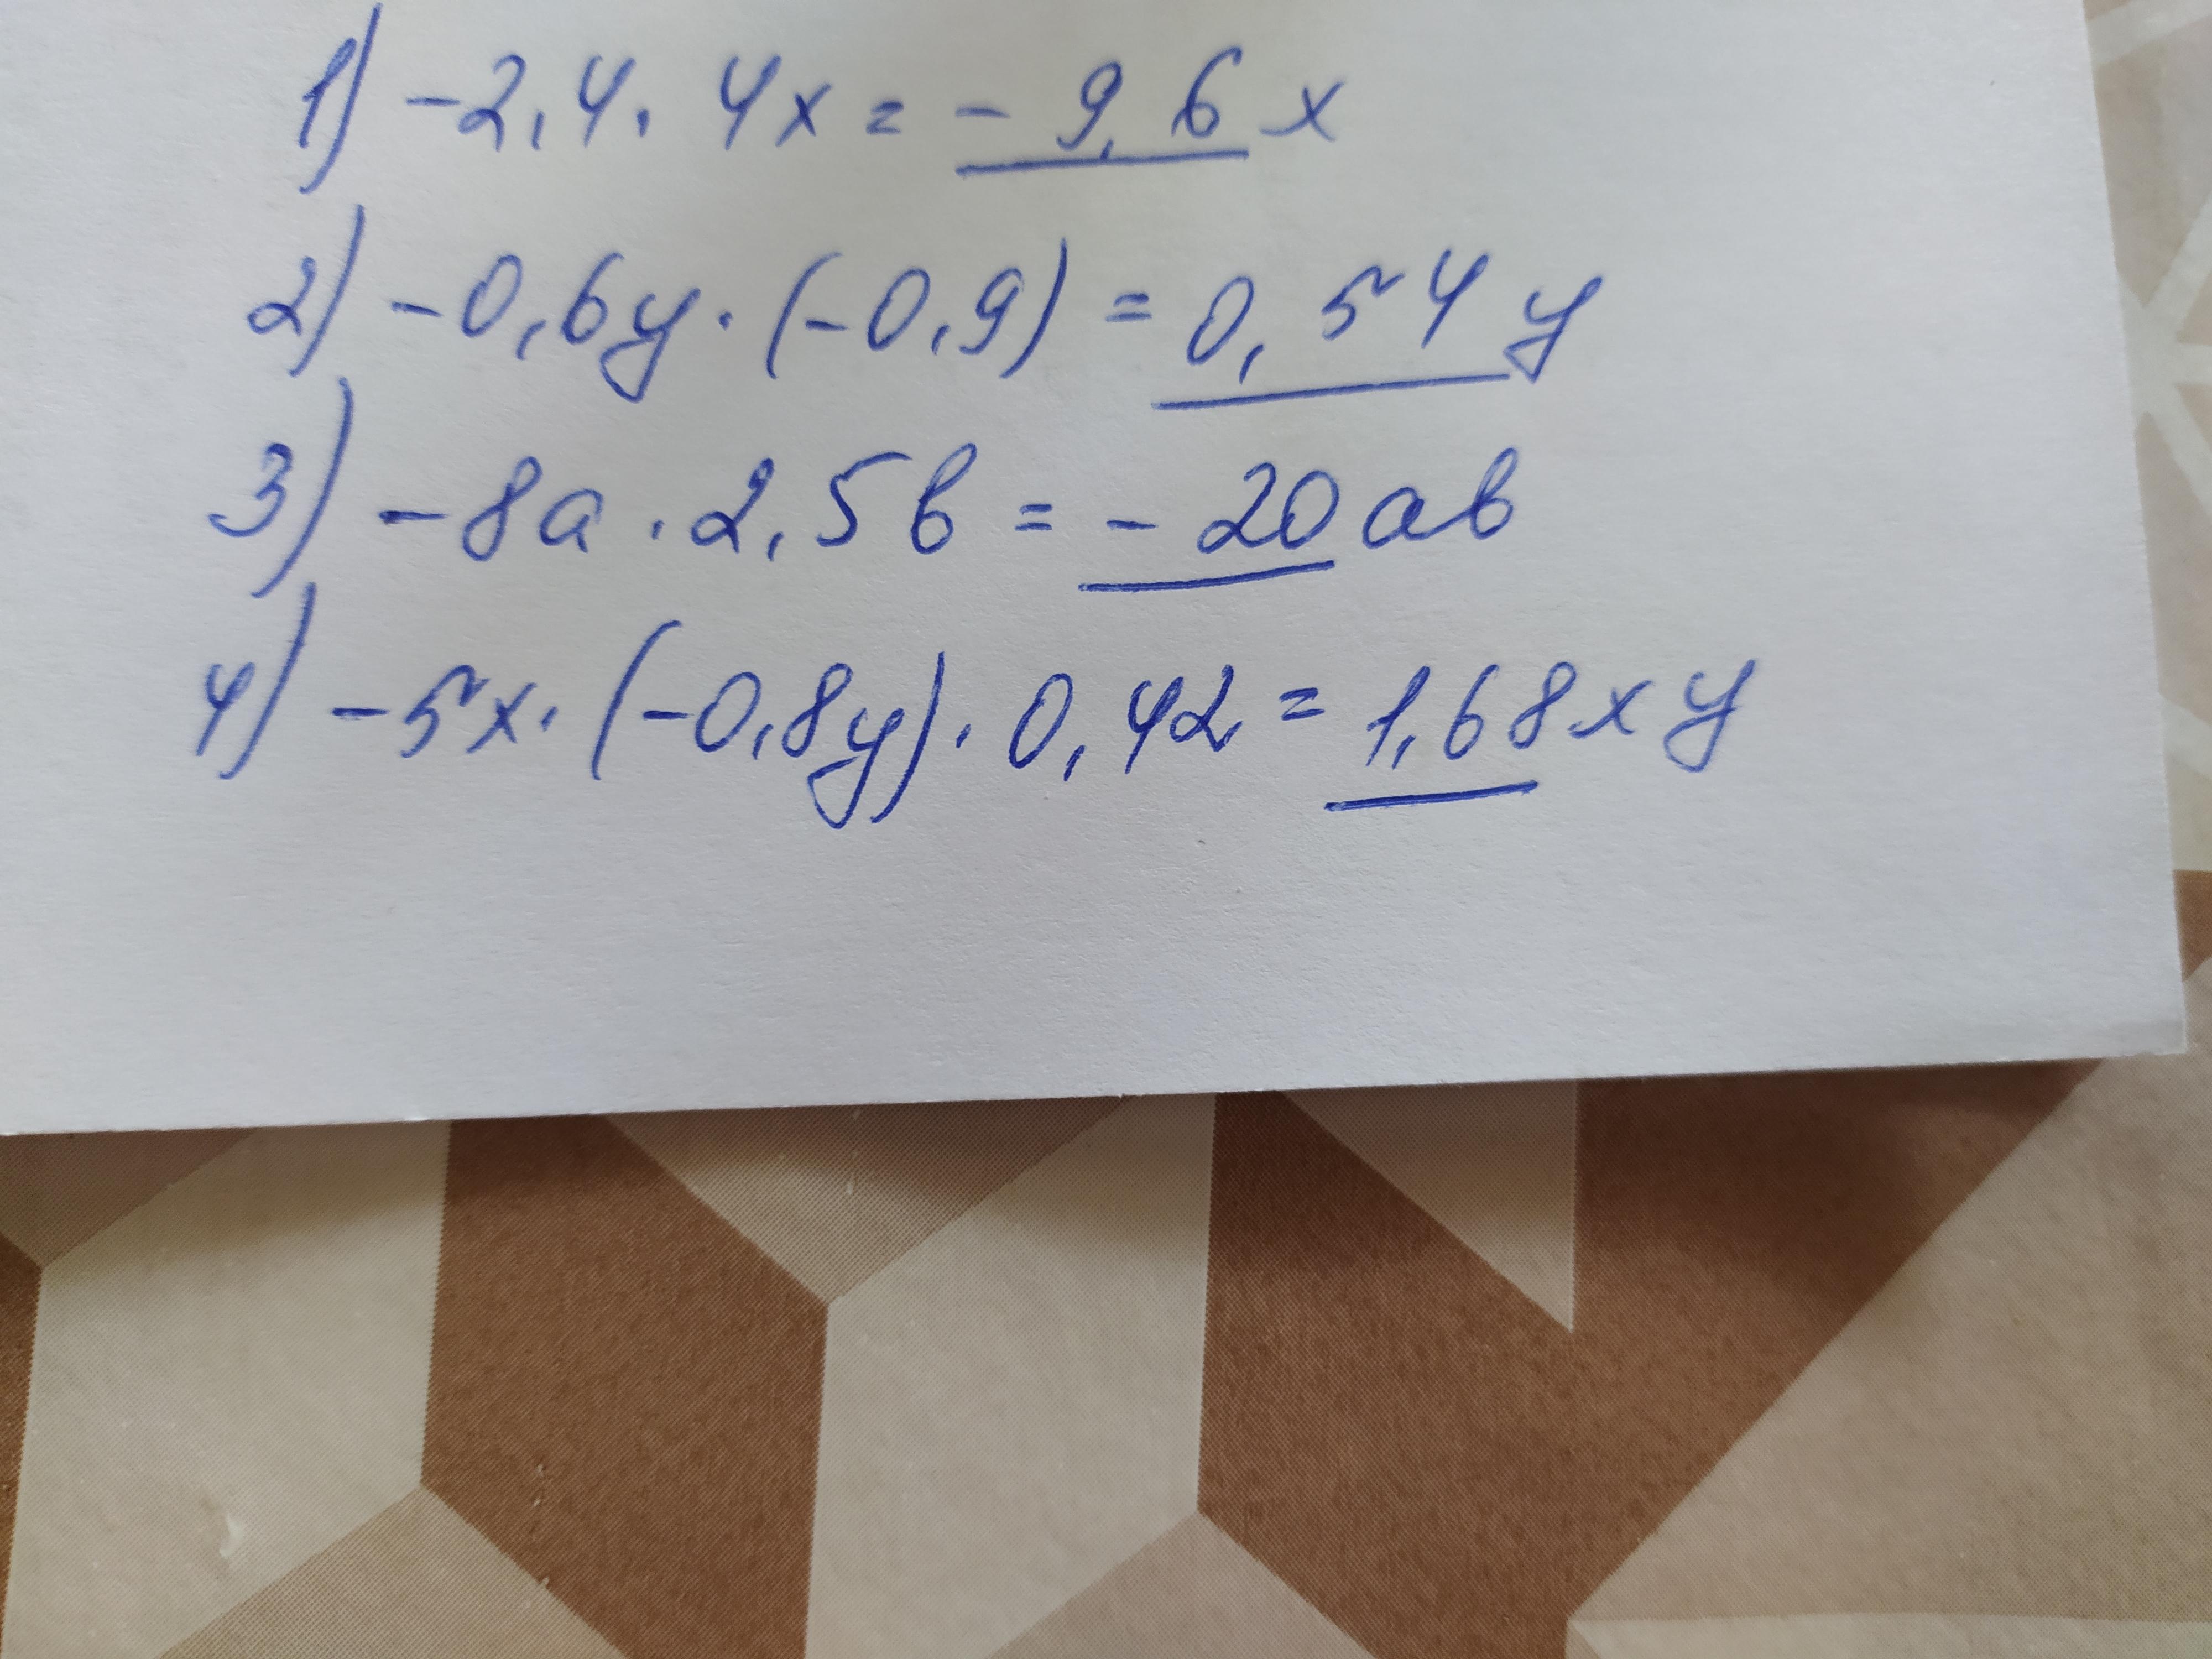 1) -2,4 · 4x = - 9,6 x
2) -0,6y · (-0,9) = 0,54 y
3) -8a · 2,5b = - 20 ab
4) -5x · (-0,8y) · 0,42 = 1,68 xy